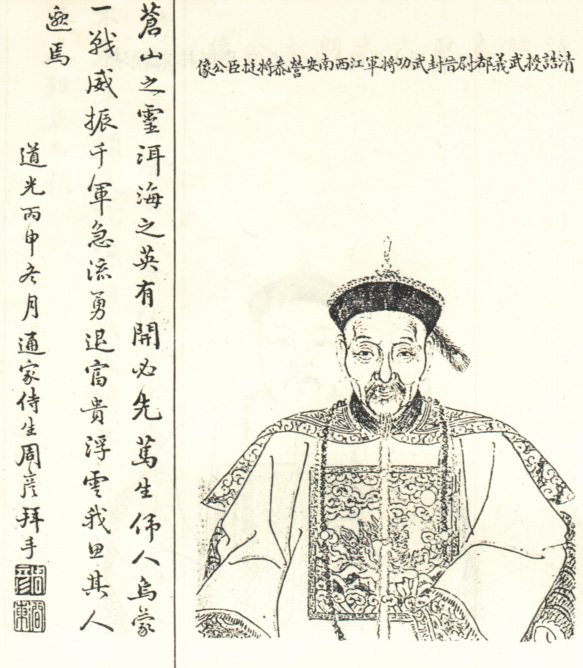 清誥授武義都尉晉封武功將軍江西南安營叅將挺臣公像
蒼山之靈洱海之英有開必先篤生偉人烏蒙
一戰威振千軍急流勇退富貴浮雲我思其人
邈焉
道光丙申冬月通家侍生周彥拜手